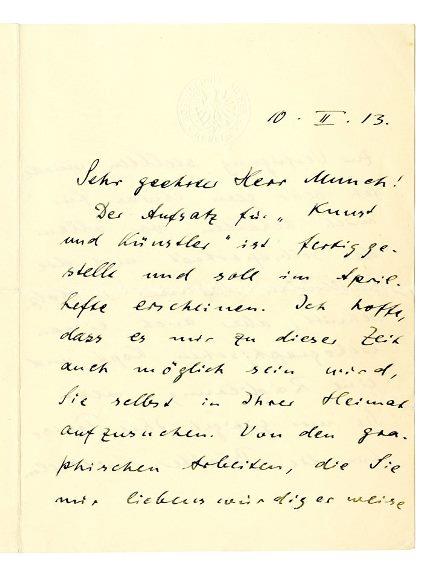 10 . II . 13.
Sehr geehrter Herr Munch!
Der Aufsatz für „Kunst
und Künstler" ist fertigge-
stellt und soll im April-
hefte erscheinen. Ich hoffe,
dass es mir zu dieser Zeit
auch möglich sein wird,
Sie selbst in Ihrer Heimat
aufzusuchen. Von den gra-
phischen Arbeiten, die Sie
mir liebenswürdiger weise